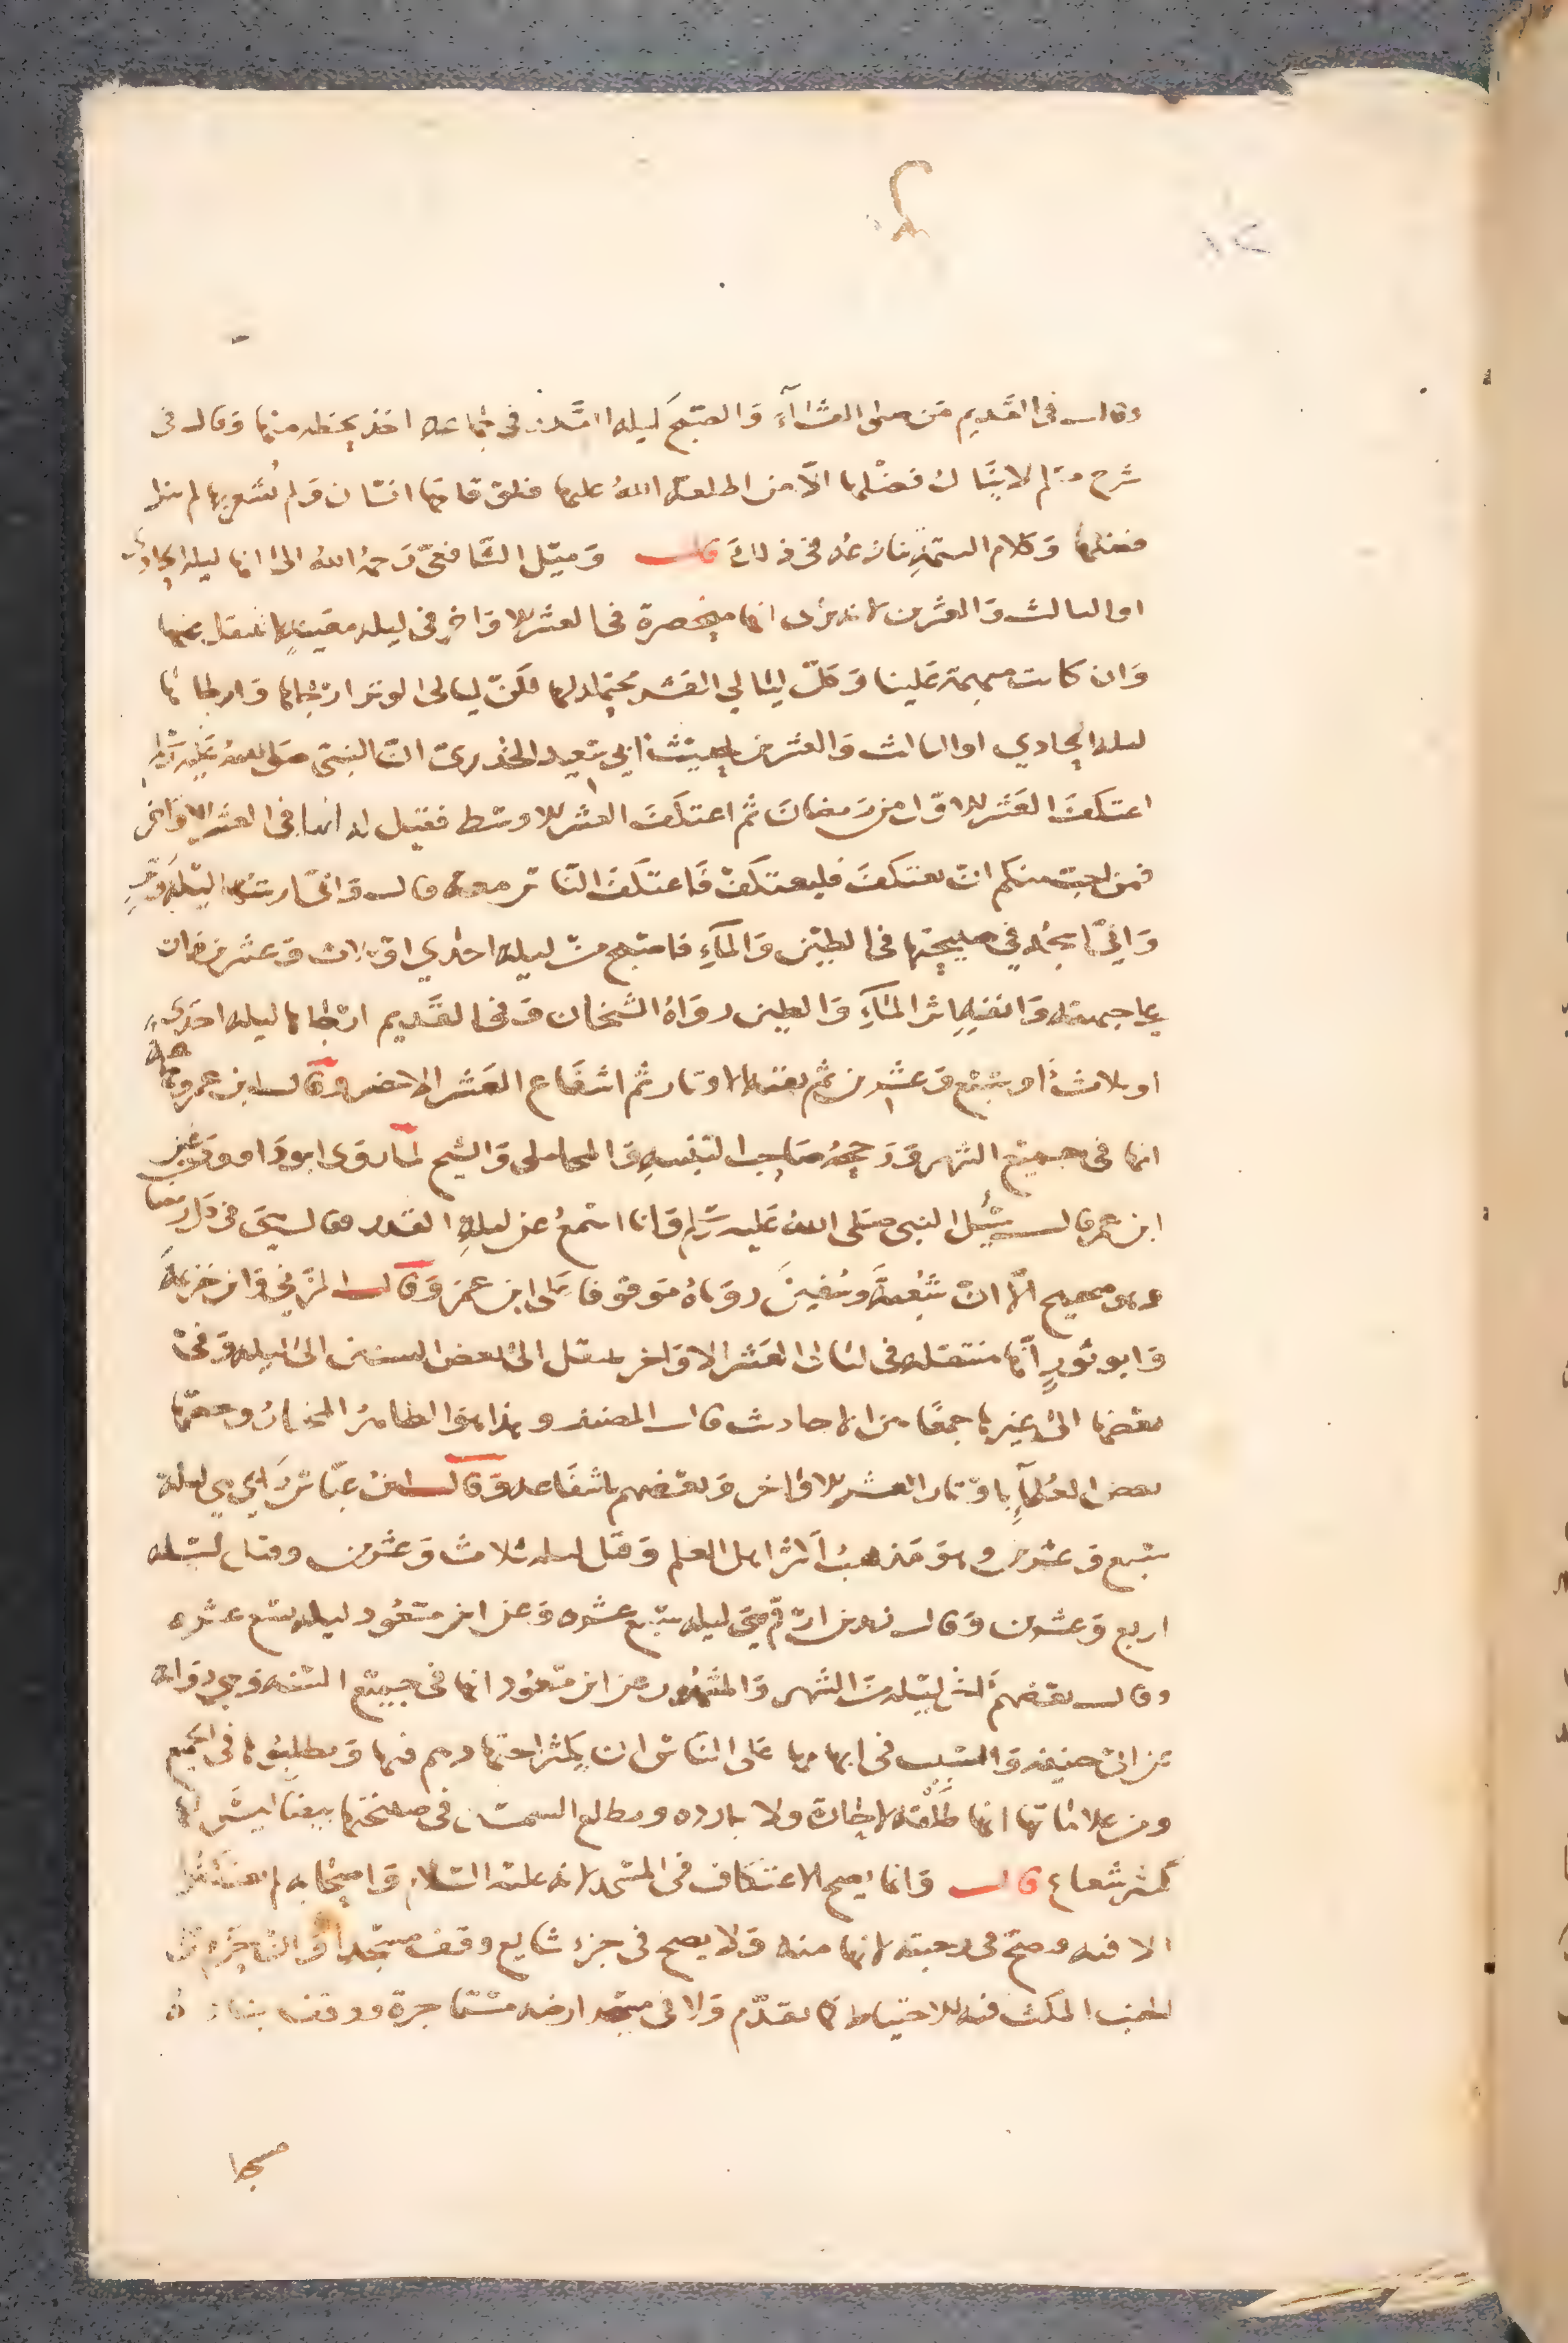 ١٢
وقال في القديم من صلى العشاء والصبح ليلة القدر في جماعة اخذ بحظه منها وقال في
شرح مسلم لا ينال فضلها الا من اطلعه الله عليها فلو قامها انسان ولم يشعر بها لم ينل
فضلها وكلام المتولي ينازعه في ذلك قال وميل الشافعي رحمه الله الى انها ليلة الحادي
او الثالث والعشرين لانه يرى انها منحصرة في العشر الاواخر في ليلة معينة لا تنتقل عنها
وان كانت مبهمة علينا وكل ليالي العشر محتملة لها لكن ليالي الوتر ارجاها وارجاها
ليلة الحادي او الثالث والعشرين لحديث ابي سعيد الخدري ان النبي صلى الله عليه وسلم
اعتكف العشر الاول من رمضان ثم اعتكف العشر الاوسط فقيل له انها في العشر الاواخر
فمن احب منكم ان يعتكف فليعتكف فاعتكف الناس معه قال واني اريتها ليلة وتر
واني اسجد في صبيحتها في الطين والماء فاصبح من ليلة احدي او ثلاث وعشرين وكان
على جبهته وانفه اثر الماء والطين رواه الشيخان وفي القديم ارجاها ليلة احدى
او ثلاث او سبع وعشرين ثم بقية الاوتار ثم اشفاع العشر الاخير وقال ابن عمر وجماعة
انها في جميع الشهر ورجحه صاحب التنبيه والمحاملي والشيخ لما روى ابو داود عن
ابن عمر قال سئل النبي صلى الله عليه وسلم وانا اسمع عن ليلة القدر فقال هي في كل رمضان
وهو صحيح الا ان شعبة وسفين روياه موقوفا على ابن عمر وقال المزني وابن خزيمة
وابو ثور انها منتقلة في ليالي العشر الاواخر تنتقل في بعض السنين الى ليلة وفي
بعضها الى غيرها جمعا بين الاحاديث قال المصنف وهذا هو الظاهر المختار وخصها
بعض العلماء باوتار العشر الاواخر وبعضهم باشفاعه وقال ابن عباس وابي هي ليلة
سبع وعشرين وهو مذهب اكثر اهل العلم وقيل ليلة ثلاث وعشرين وقيل ليلة
اربع وعشرين وقال زيد بن ارقم هي ليلة سبع عشرة وعن ابن مسعود ليلة تسع عشرة
وقال بعضهم اخر ليلة من الشهر والمشهور عن ابن مسعود انها في جميع السنة وهي رواية
عن ابي حنيفة والسبب في ابهامها على الناس ان يكثر اجتهادهم فيها ويطلبوها في الجميع
ومن علاماتها انها طلقة لا حارة ولا باردة ومطلع الشمس في صبيحتها بيضا ليس لها
كثير شعاع قال وانما يصح الاعتكاف في المسجد لانه عليه السلام واصحابه لم يعتكفوا
الا فيه وصح في رحبته لانها منه ولا يصح في جزء شايع وقف مسجدا وان حرم على
الجنب المكث فيه للاحتياط كما تقدم ولا في مسجد ارضه مستاجرة ووقف بناؤه
مسجدا